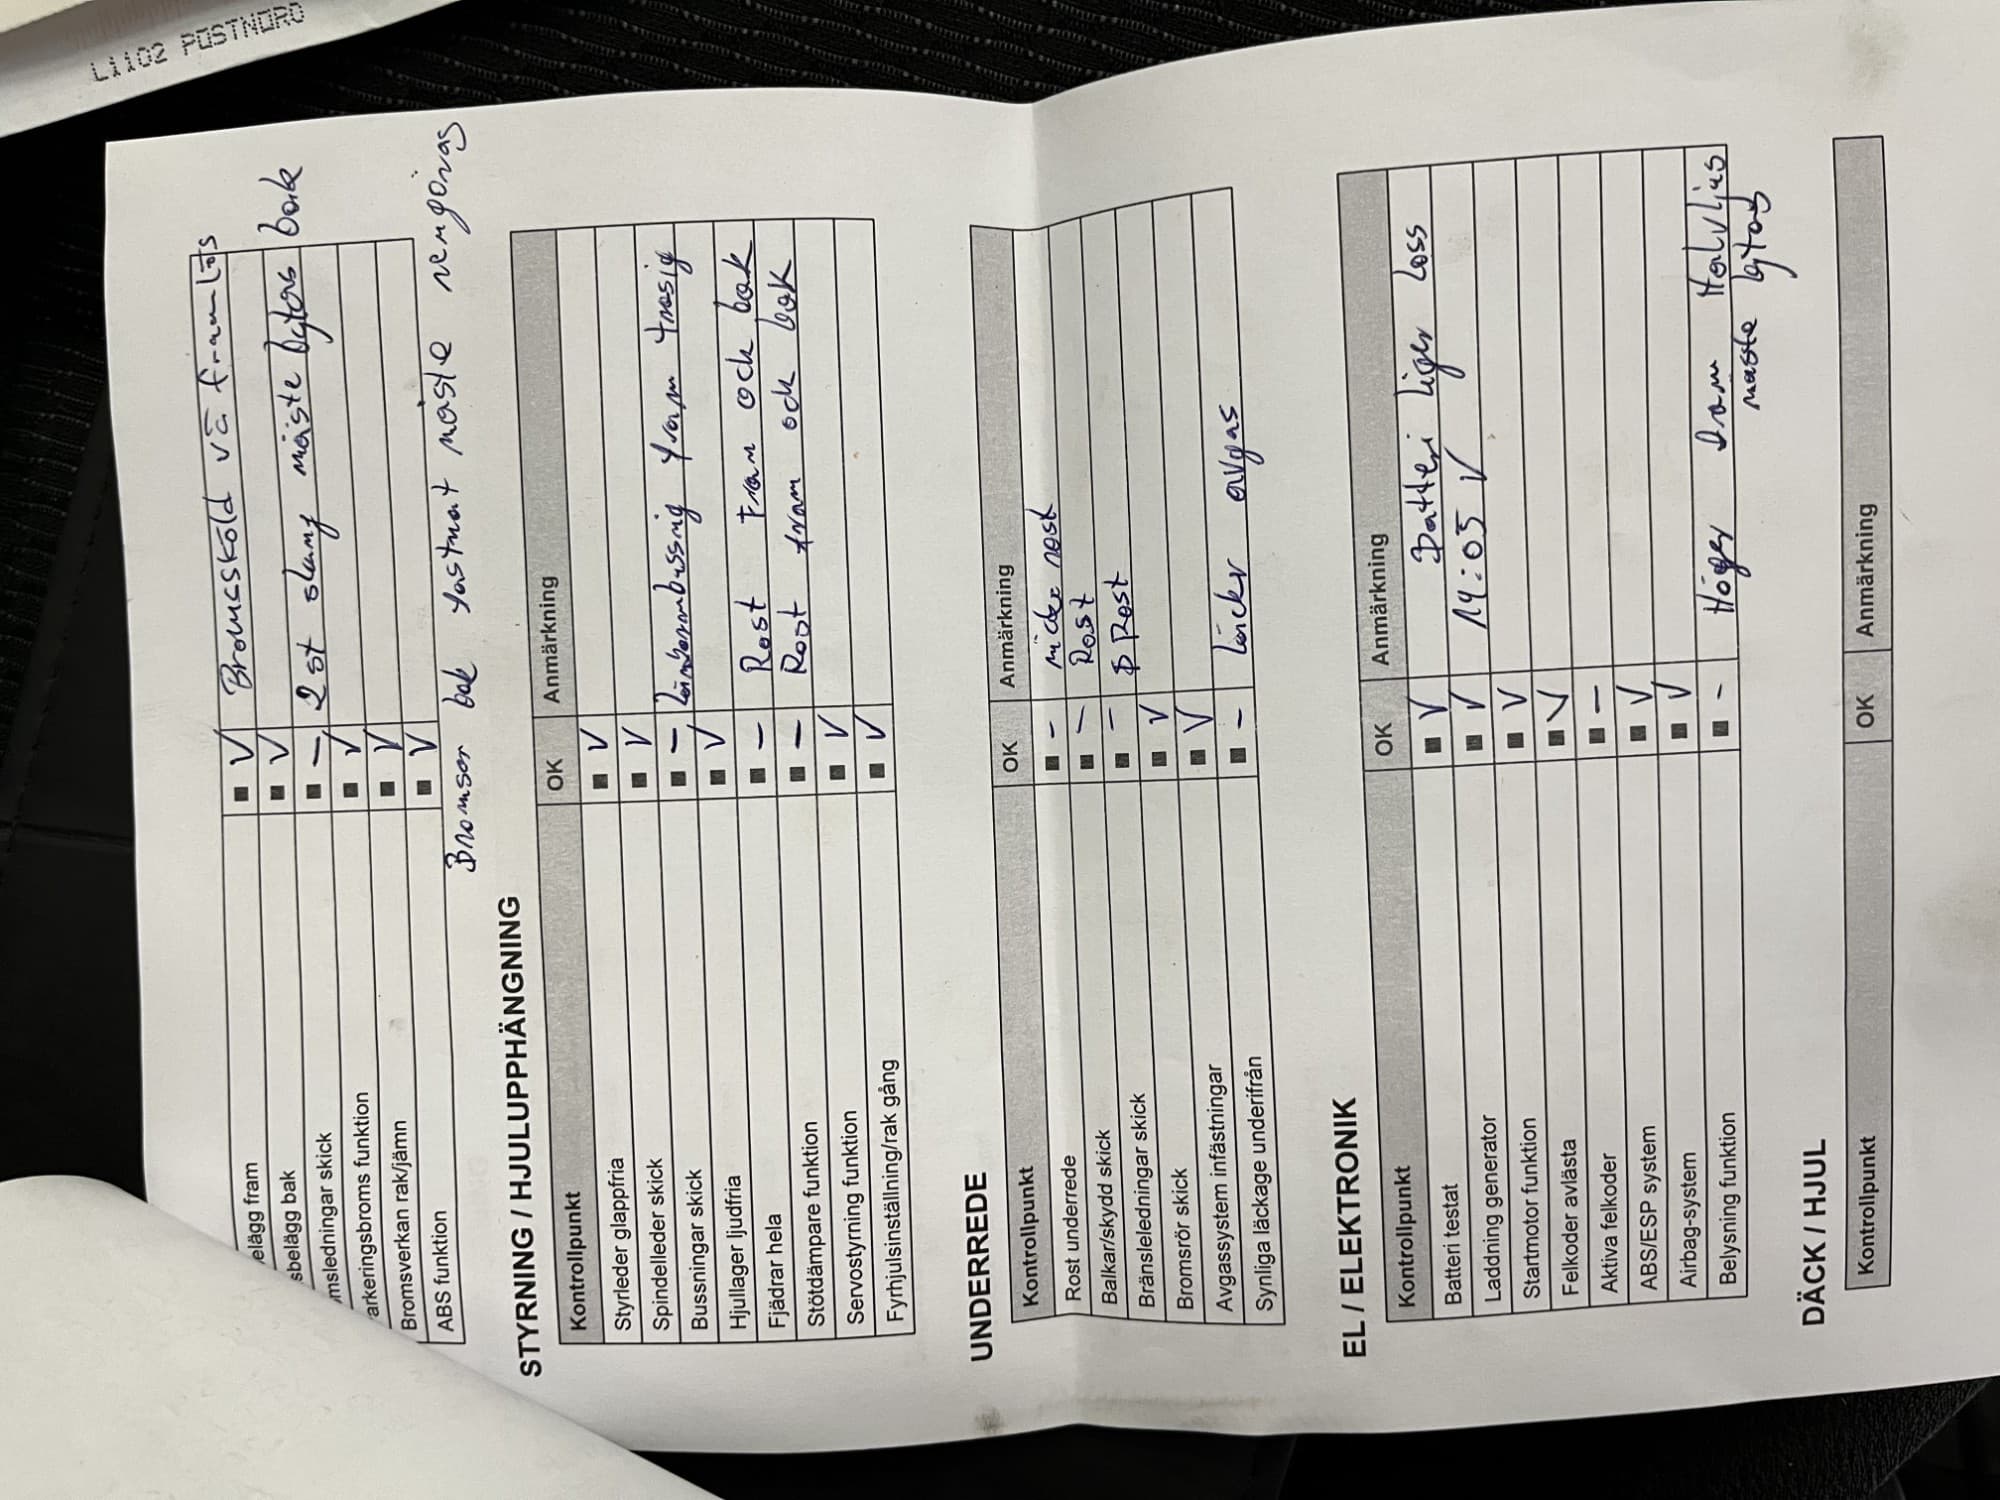 L1102 POSTNORD
elägg fram ■ V Bromssköld vä fram lös
sbelägg bak ■ V
msledningar skick ■ – 2 st slang måste bytas bak
arkeringsbroms funktion ■ V
Bromsverkan rak/jämn ■ V
ABS funktion ■ V
Bromsar bak fastnat måste rengöras
STYRNING / HJULUPPHÄNGNING
Kontrollpunkt OK Anmärkning
Styrleder glappfria ■ V
Spindelleder skick ■ V
Bussningar skick ■ – Länkarmbussnig fram trasig
Hjullager ljudfria ■ V
Fjädrar hela ■ – Rost fram och bak
Stötdämpare funktion ■ – Rost fram och bak
Servostyrning funktion ■ V
Fyrhjulsinställning/rak gång ■ V
UNDERREDE
Kontrollpunkt OK Anmärkning
Rost underrede ■ – rost
Balkar/skydd skick ■ – Rost
Bränsleledningar skick ■ – Rost
Bromsrör skick ■ V
Avgassystem infästningar ■ V
Synliga läckage underifrån ■ – Läcker avgas
EL / ELEKTRONIK
Kontrollpunkt OK Anmärkning
Batteri testat ■ V Batteri liger Loss
Laddning generator ■ V 14:05 V
Startmotor funktion ■ V
Felkoder avlästa ■ V
Aktiva felkoder ■ –
ABS/ESP system ■ V
Airbag-system ■ V
Belysning funktion ■ – Höger fram Halvljus
måste bytas
DÄCK / HJUL
Kontrollpunkt OK Anmärkning